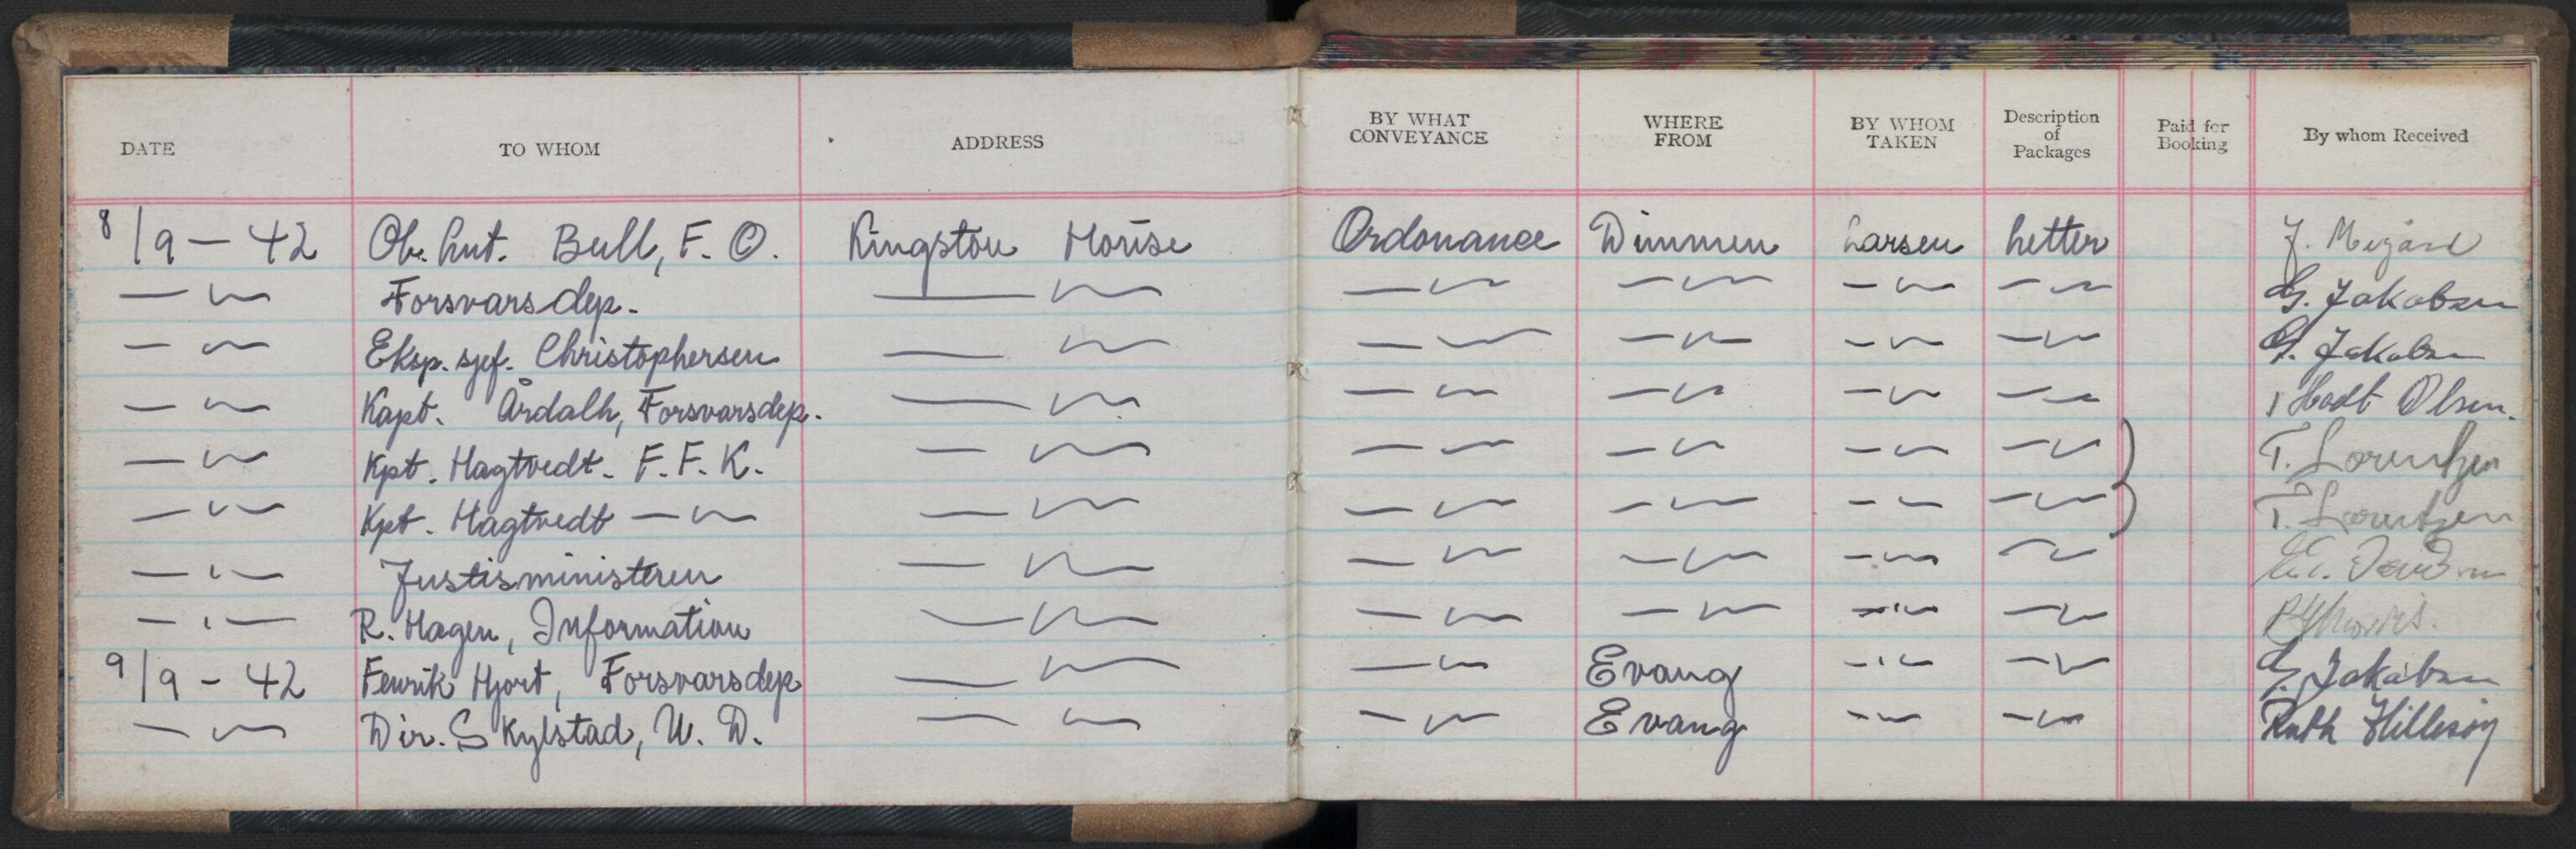 DATE TO WHOM ADDRESS BY WHAT CONVEYANCE WHERE FROM BY WHOM TAKEN Description of Packages Paid for Booking By whom Received
8/9 – 42 Ob. lnt. Bull, F. O. Kingston House Ordonance Dimmen Larsen Letter J.
— " — Forsvarsdep. — " — — " — — " — — " — — " — G. Jakobsen
— " — Eksp. sjef. Christophersen — " — — " — — " — — " — — " — G. Jakobsen
— " — Kapt. Årdalh, Forsvarsdep. — " — — " — — " — — " — — " — Olsen.
— " — Kpt. Hagtvedt. F. F. K. — " — — " — — " — — " — — " — } T. Lorentzen
— " — Kpt. Hagtvedt — " — — " — — " — — " — — " — — " — T. Lorentzen
— " — Justisministeren — " — — " — — " — — " — — " —
— " — R. Hagen, Information — " — — " — — " — — " — — " —
9/9 – 42 Fenrik Hjort, Forsvarsdep — " — — " — Evang — " — — " — G. Jakobsen
— " — Dir. Skylstad, U. D. — " — — " — Evang — " — — " — Ruth Hillesøy